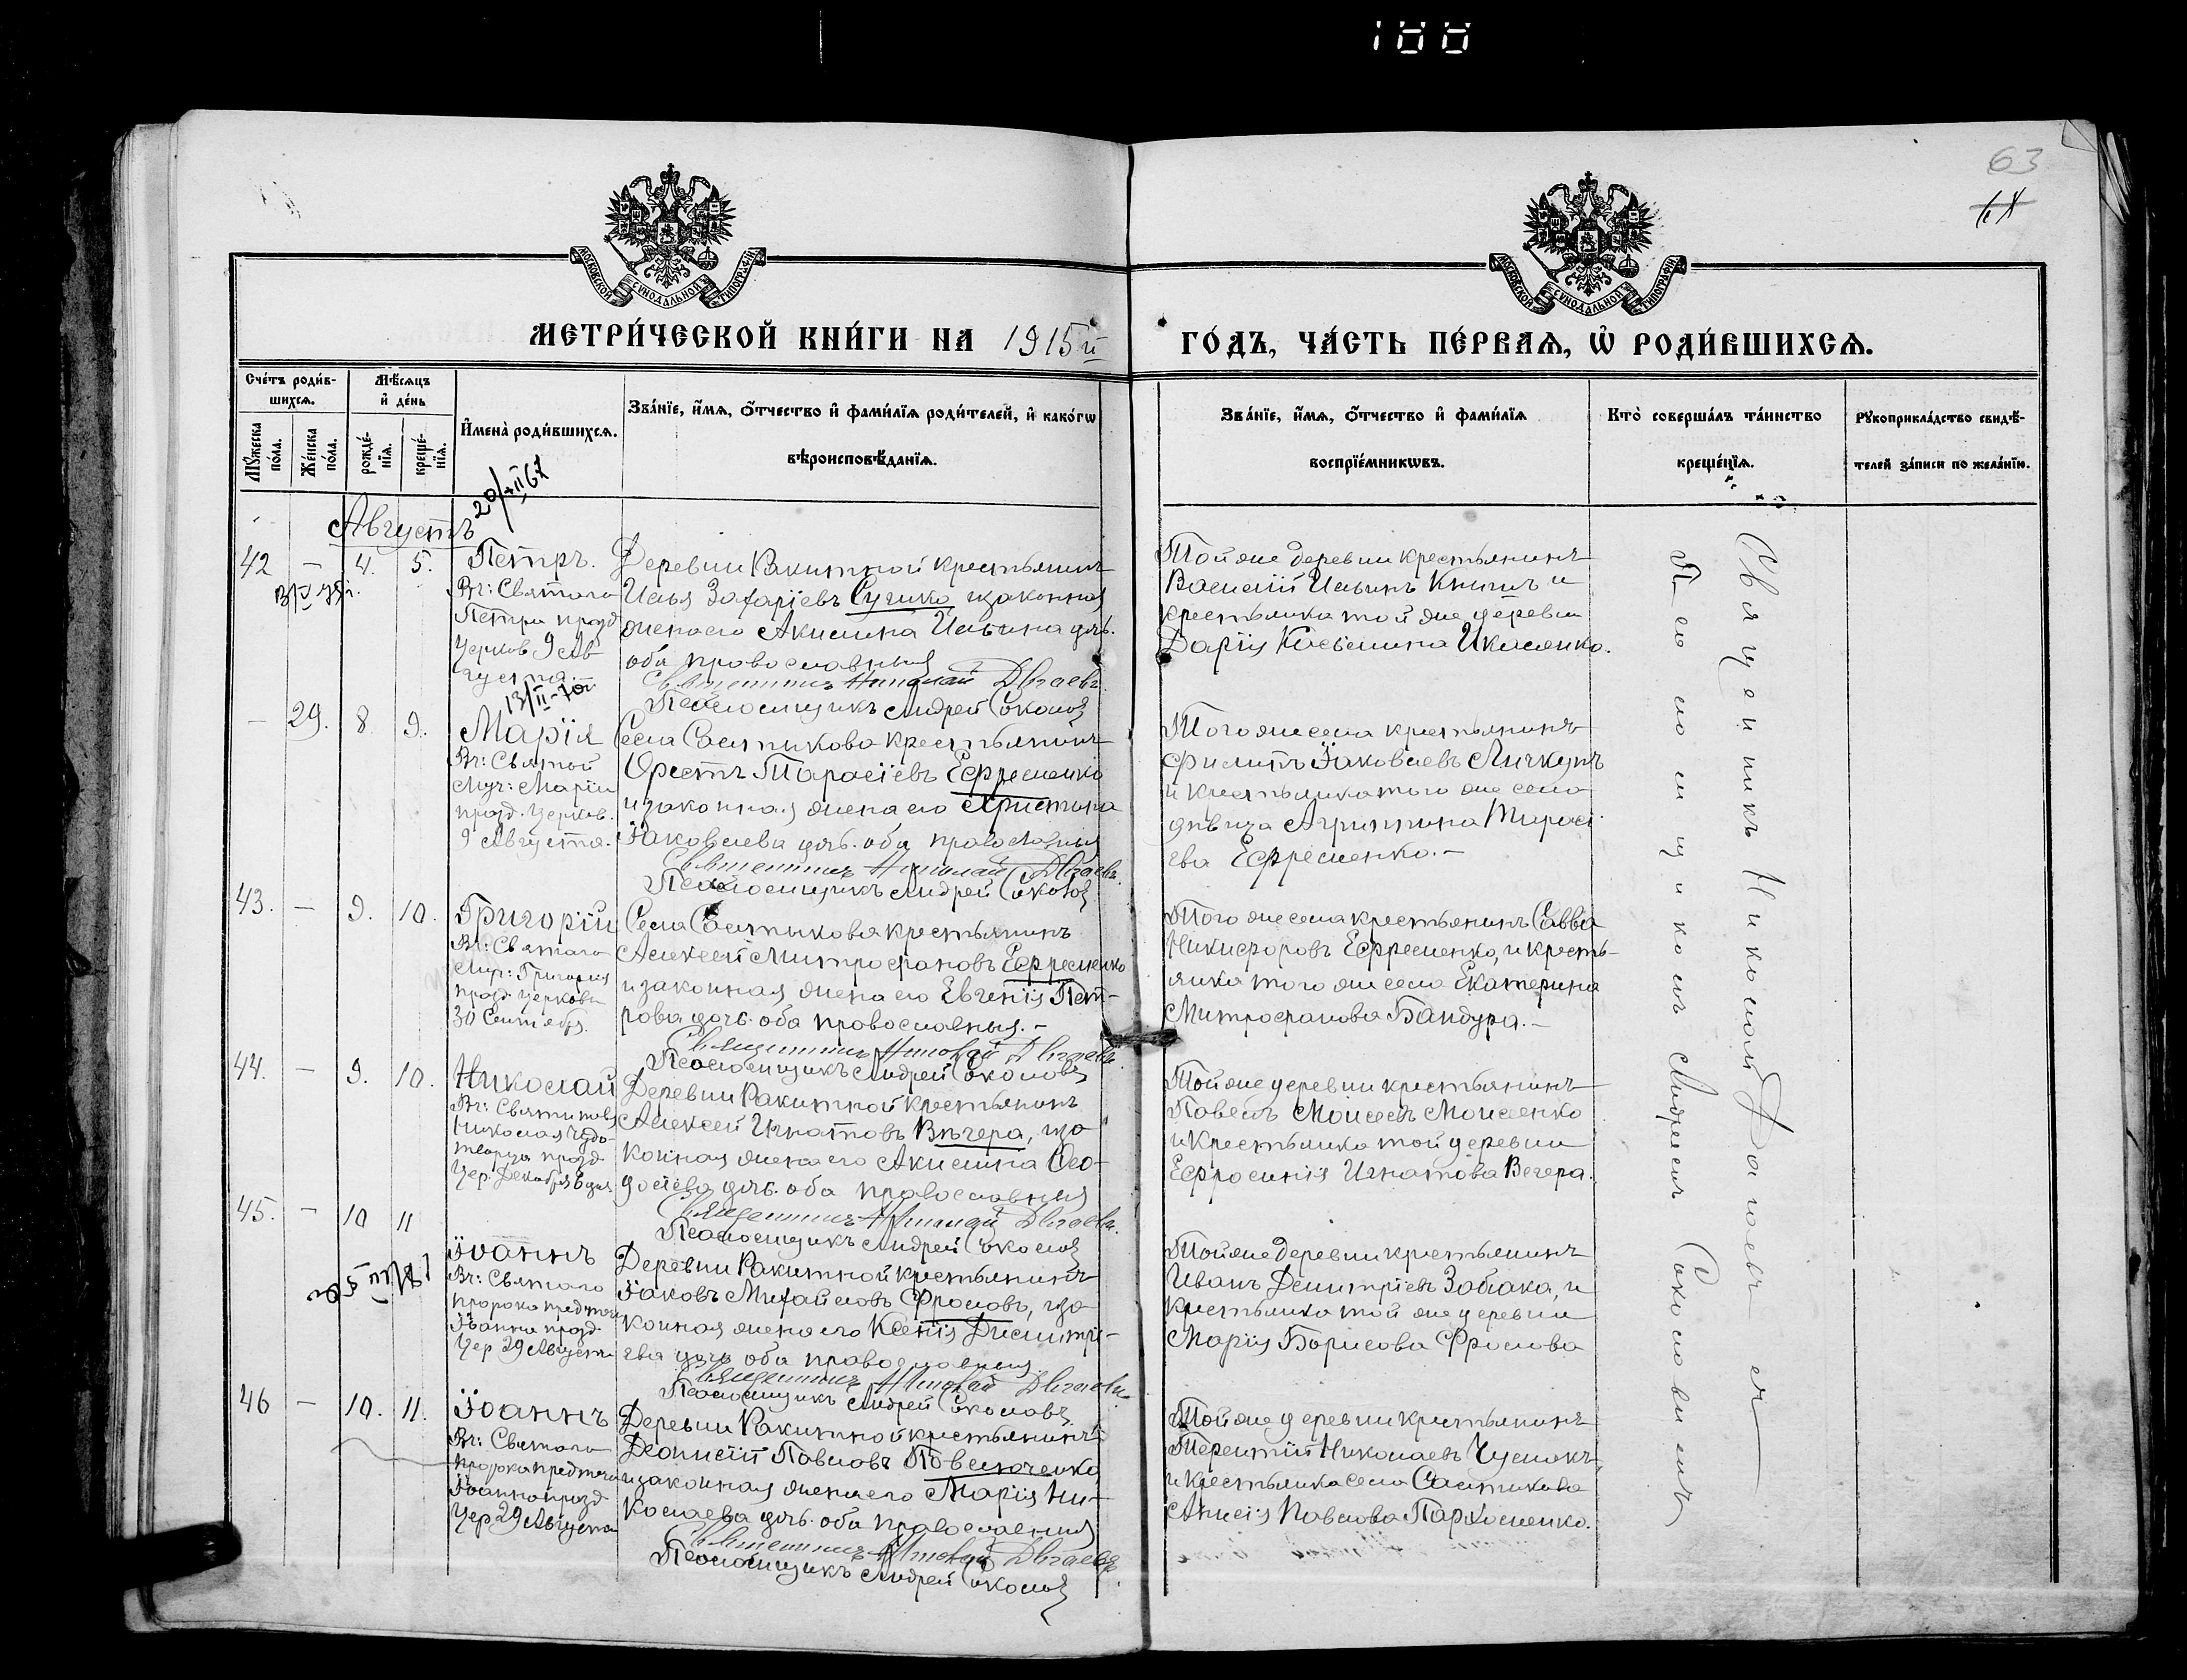 188
63
МОСКОВСКОЙ СѴНОДАЛЬНОЙ ТИПОГРАФІИ
МОСКОВСКОЙ СѴНОДАЛЬНОЙ ТИПОГРАФІИ
МЕТРИ́ЧЕСКОЙ КНИ́ГИ НА 1915й
ГО́ДЪ, ЧА́СТЬ ПЕ́РВАѦ, Ѽ РОДИ́ВШИХСѦ.
Сче́тъ роди́в-
шихсѧ.
Мѣ́сѧцъ
и҆ де́нь
Мꙋ́жеска
по́ла.
Же́нска
по́ла.
рожде́-
нїѧ.
креще́-
нїѧ.
И҆мена̀ роди́вшихсѧ.
Зва́нїе, и҆́мѧ, ѻ҆́тчество и҆ фами́лїѧ роди́телей, и҆ како́гѡ
вѣроисповѣ́данїѧ.
Зва́нїе, и҆́мѧ, ѻ҆́тчество и҆ фами́лїѧ
воспрїе́мникѡвъ.
Кто̀ соверша́лъ та́инство
креще́нїѧ.
Рꙋкоприкла́дство свидѣ́-
телей за́писи по жела́нїю.
Августъ
42 — 4. 5. Петръ.
Въ: Святаго
Петра празд
Церков 9 Ав
густа.
13/II-70г.
Деревни Ракитной крестьянинъ
Илья Захаріевъ Сушко и законная
жена его Акилина Ильина дочь.
оба православныя
Священникъ Николай Двгаевъ
Псаломщикъ Андрей Соколов
Той же деревни крестьянинъ
Василій Ильинъ Книшъ и
крестьянка той же деревни
Дарія
— 29. 8. 9. Марія
Въ: Святой
Муч: Маріи
празд. Церков.
9 Августа.
Села Салтикова крестьянинъ
Орестъ Тарасіевъ Ефременко
и законная жена его Христина
Іаковлева дочь. оба православныя
Священникъ Николай
Псаломщикъ Андрей Соколов
Того же села крестьянинъ
Филипъ Іаковлевъ Личкунъ
и крестьянка того же села
дѣвица Агрипина Тарасі
ева Ефременко.—
43. — 9. 10. Григорій
Въ: Святаго
Муч: Григорія
празд. церковь
30 Сентября.
Села Салтыкова крестьянинъ
Алексей Митрофановъ Ефременко
и законная жена его Евгенія Пет-
рова дочь. оба православныя.—
Священникъ Николай
Псаломщикъ Андрей Соколовъ
Того же села крестьянинъ Савва
Никифоровъ Ефременко, и кресть-
янка того же села Екатерина
Митрофанова Бандура.—
44. — 9. 10. Николай
Въ: Святителя
Николая Чудо-
творца празд
Цер. Декабря 6 дня
Деревни Ракитной крестьянинъ
Алексей Игнатовъ Вечера, и за
конная жена его Акилина Ѳео-
досіева дочь. оба православныя
Священникъ Николай
Псаломщикъ Андрей Соколов
Той же деревни крестьянинъ
Павелъ Моисеевъ Моисеенко
и крестьянка той деревни
Ефросинія Игнатова Вечера.
45. — 10 11
Іоаннъ
Въ: Святаго
пророка предтечи
Іоанна празд.
Цер 29 Августа
Деревни Ракитной крестьянинъ
Іаковъ Михайловъ Фроловъ, и за
конная жена его Ксенія Димитрі-
ева дочь оба православныя
Священникъ Николай
Псаломщикъ Андрей Соколовъ
Той же деревни крестьянинъ
Иванъ Димитріевъ Забіака, и
крестьянка той же деревни
Марія Борисова Фролова
46 — 10. 11. Іоаннъ
Въ: Святаго
пророка предтечи
Іоанна празд
Цер 29 Августа
Деревни Ракитной крестьянинъ
Деонисій Павловъ Павлюченко
и законная жена его Марія Ни-
колаева дочь. оба православныя
Священникъ Николай
Псаломщикъ Андрей Соколов
Той же деревни крестьянинъ
Терентій Николаевъ
и крестьянка села Салтикова
Анисія Павлова Пархоменко.
Священникъ Николай
Псаломщикомъ Андреемъ Соколовимъ